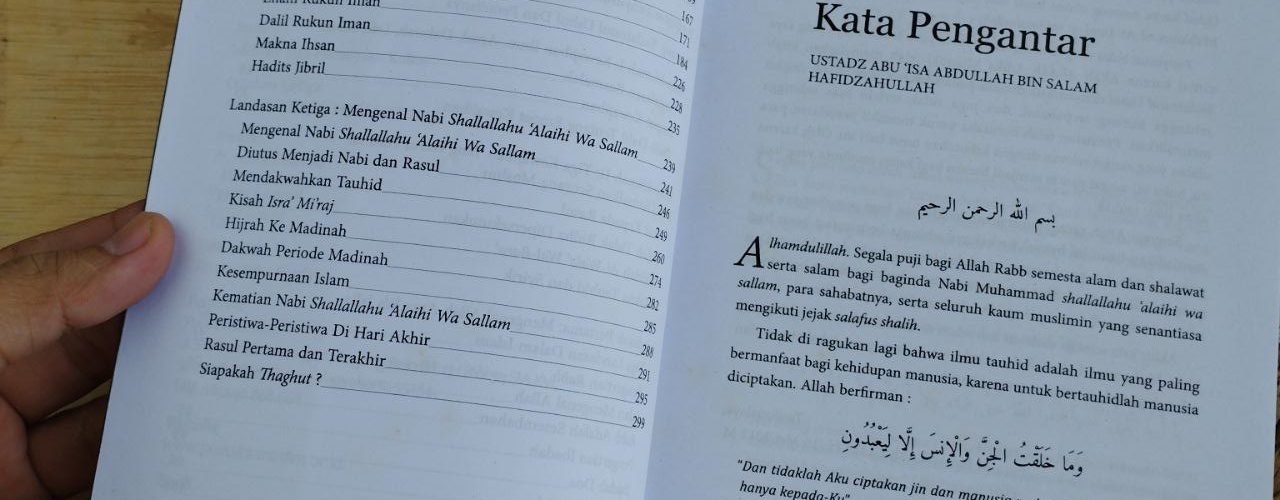 167
171
Enam Rukun Iman 184
Dalil Rukun Iman 226
Makna Ihsan 228
Hadits Jibril 235
Landasan Ketiga : Mengenal Nabi Shallallahu ‘Alaihi Wa Sallam 239
Mengenal Nabi Shallallahu ‘Alaihi Wa Sallam 241
Diutus Menjadi Nabi dan Rasul 246
Mendakwahkan Tauhid 249
Kisah Isra’ Mi’raj 260
Hijrah Ke Madinah 274
Dakwah Periode Madinah 282
Kesempurnaan Islam 285
Kematian Nabi Shallallahu ‘Alaihi Wa Sallam 288
Peristiwa-Peristiwa Di Hari Akhir 291
Rasul Pertama dan Terakhir 295
Siapakah Thaghut ? 299
Kata Pengantar
USTADZ ABU ‘ISA ABDULLAH BIN SALAM
HAFIDZAHULLAH
بسم الله الرحمن الرحيم
Alhamdulillah. Segala puji bagi Allah Rabb semesta alam dan shalawat
serta salam bagi baginda Nabi Muhammad shallallahu 'alaihi wa
sallam, para sahabatnya, serta seluruh kaum muslimin yang senantiasa
mengikuti jejak salafus shalih.
Tidak di ragukan lagi bahwa ilmu tauhid adalah ilmu yang paling
bermanfaat bagi kehidupan manusia, karena untuk bertauhidlah manusia
diciptakan. Allah berfirman :
وَمَا خَلَقْتُ الْجِنَّ وَالْإِنسَ إِلَّا لِيَعْبُدُونِ
"Dan tidaklah Aku ciptakan jin dan manusia
hanya kepada-Ku"